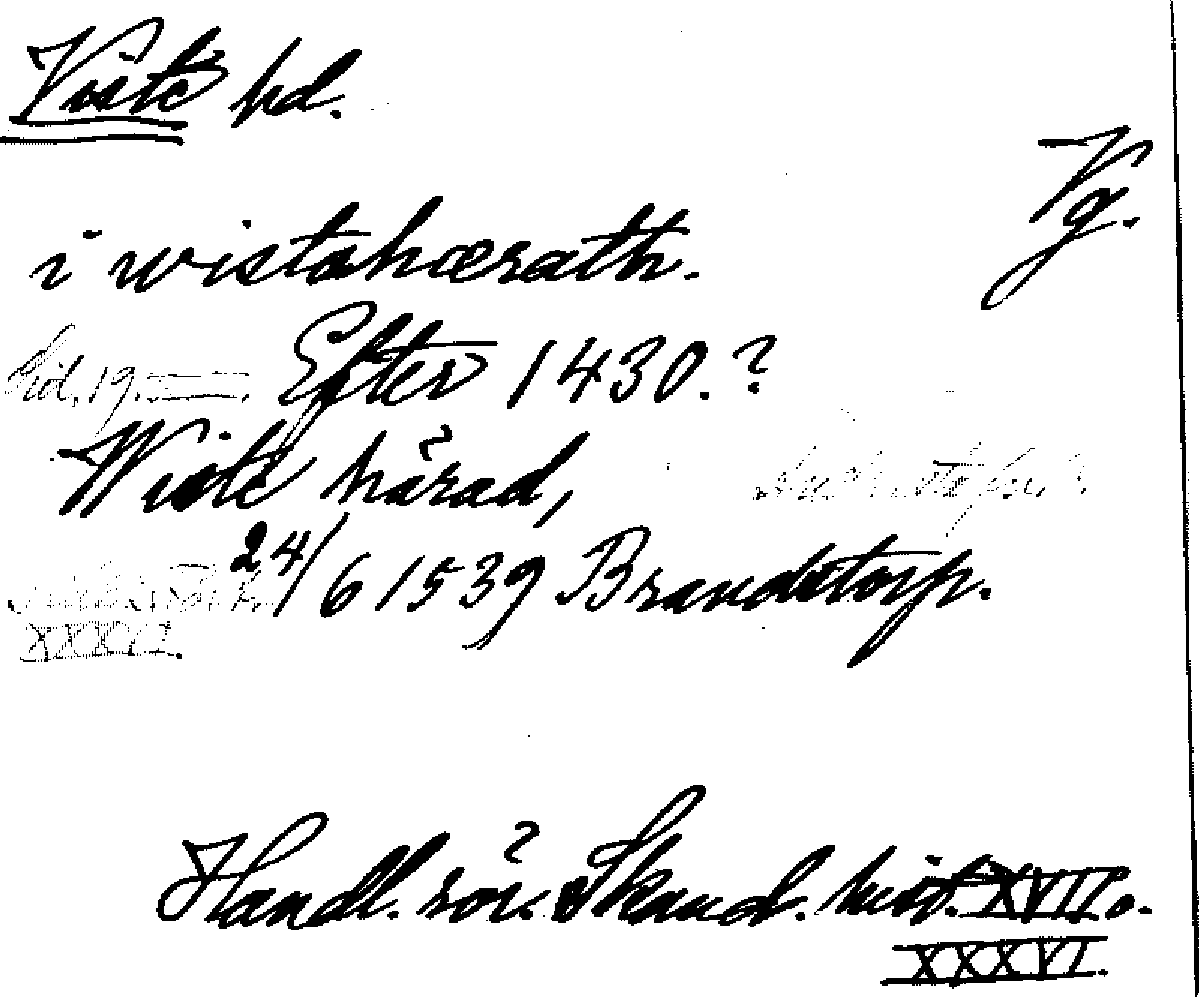 Viste hd.
Vg.
i wistahærath.
Efter 1430.?
Wiste härad,
24/6 1539 Brandstorp.
XXXVI.
Handl. rör. Skand. hist. XVII o.
XXXVI.